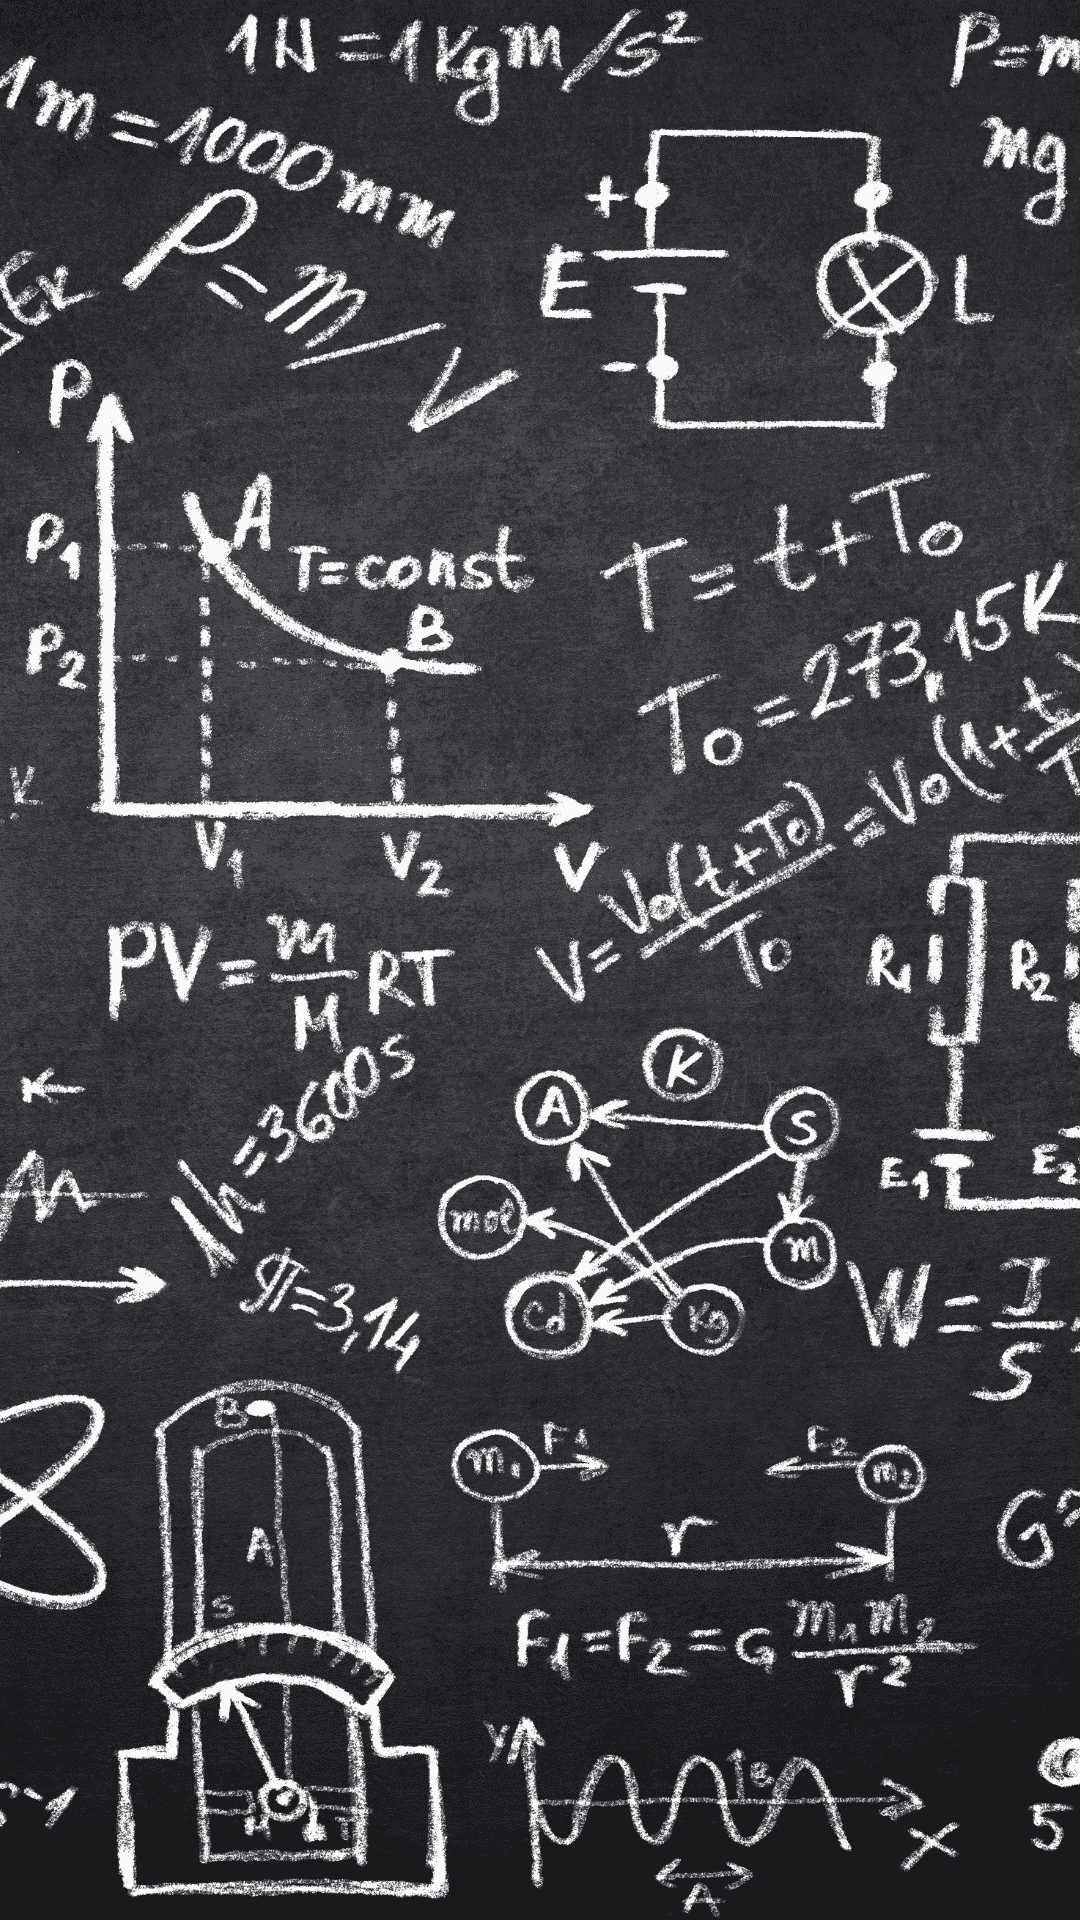 1N = 1kgm/s²
P=m
mg
1m = 1000mm
ρ=m/V
Ek
+
E
L
-
P
P₁
A
T=const
P₂
B
V₁
V₂
V
T = t+T₀
T₀ = 273,15K
V= V₀(t+T₀)/T₀ = V₀(1+t/T
K
PV = m/M RT
R₁
R₂
E₁
E₂
1h =3600s
π=3,14
K
A
S
mol
m
Cd
kg
W = J/S
B
A
S
m₁
F₁
F₂
m₂
r
F₁=F₂= G m₁m₂/r²
G
y
x
A
5